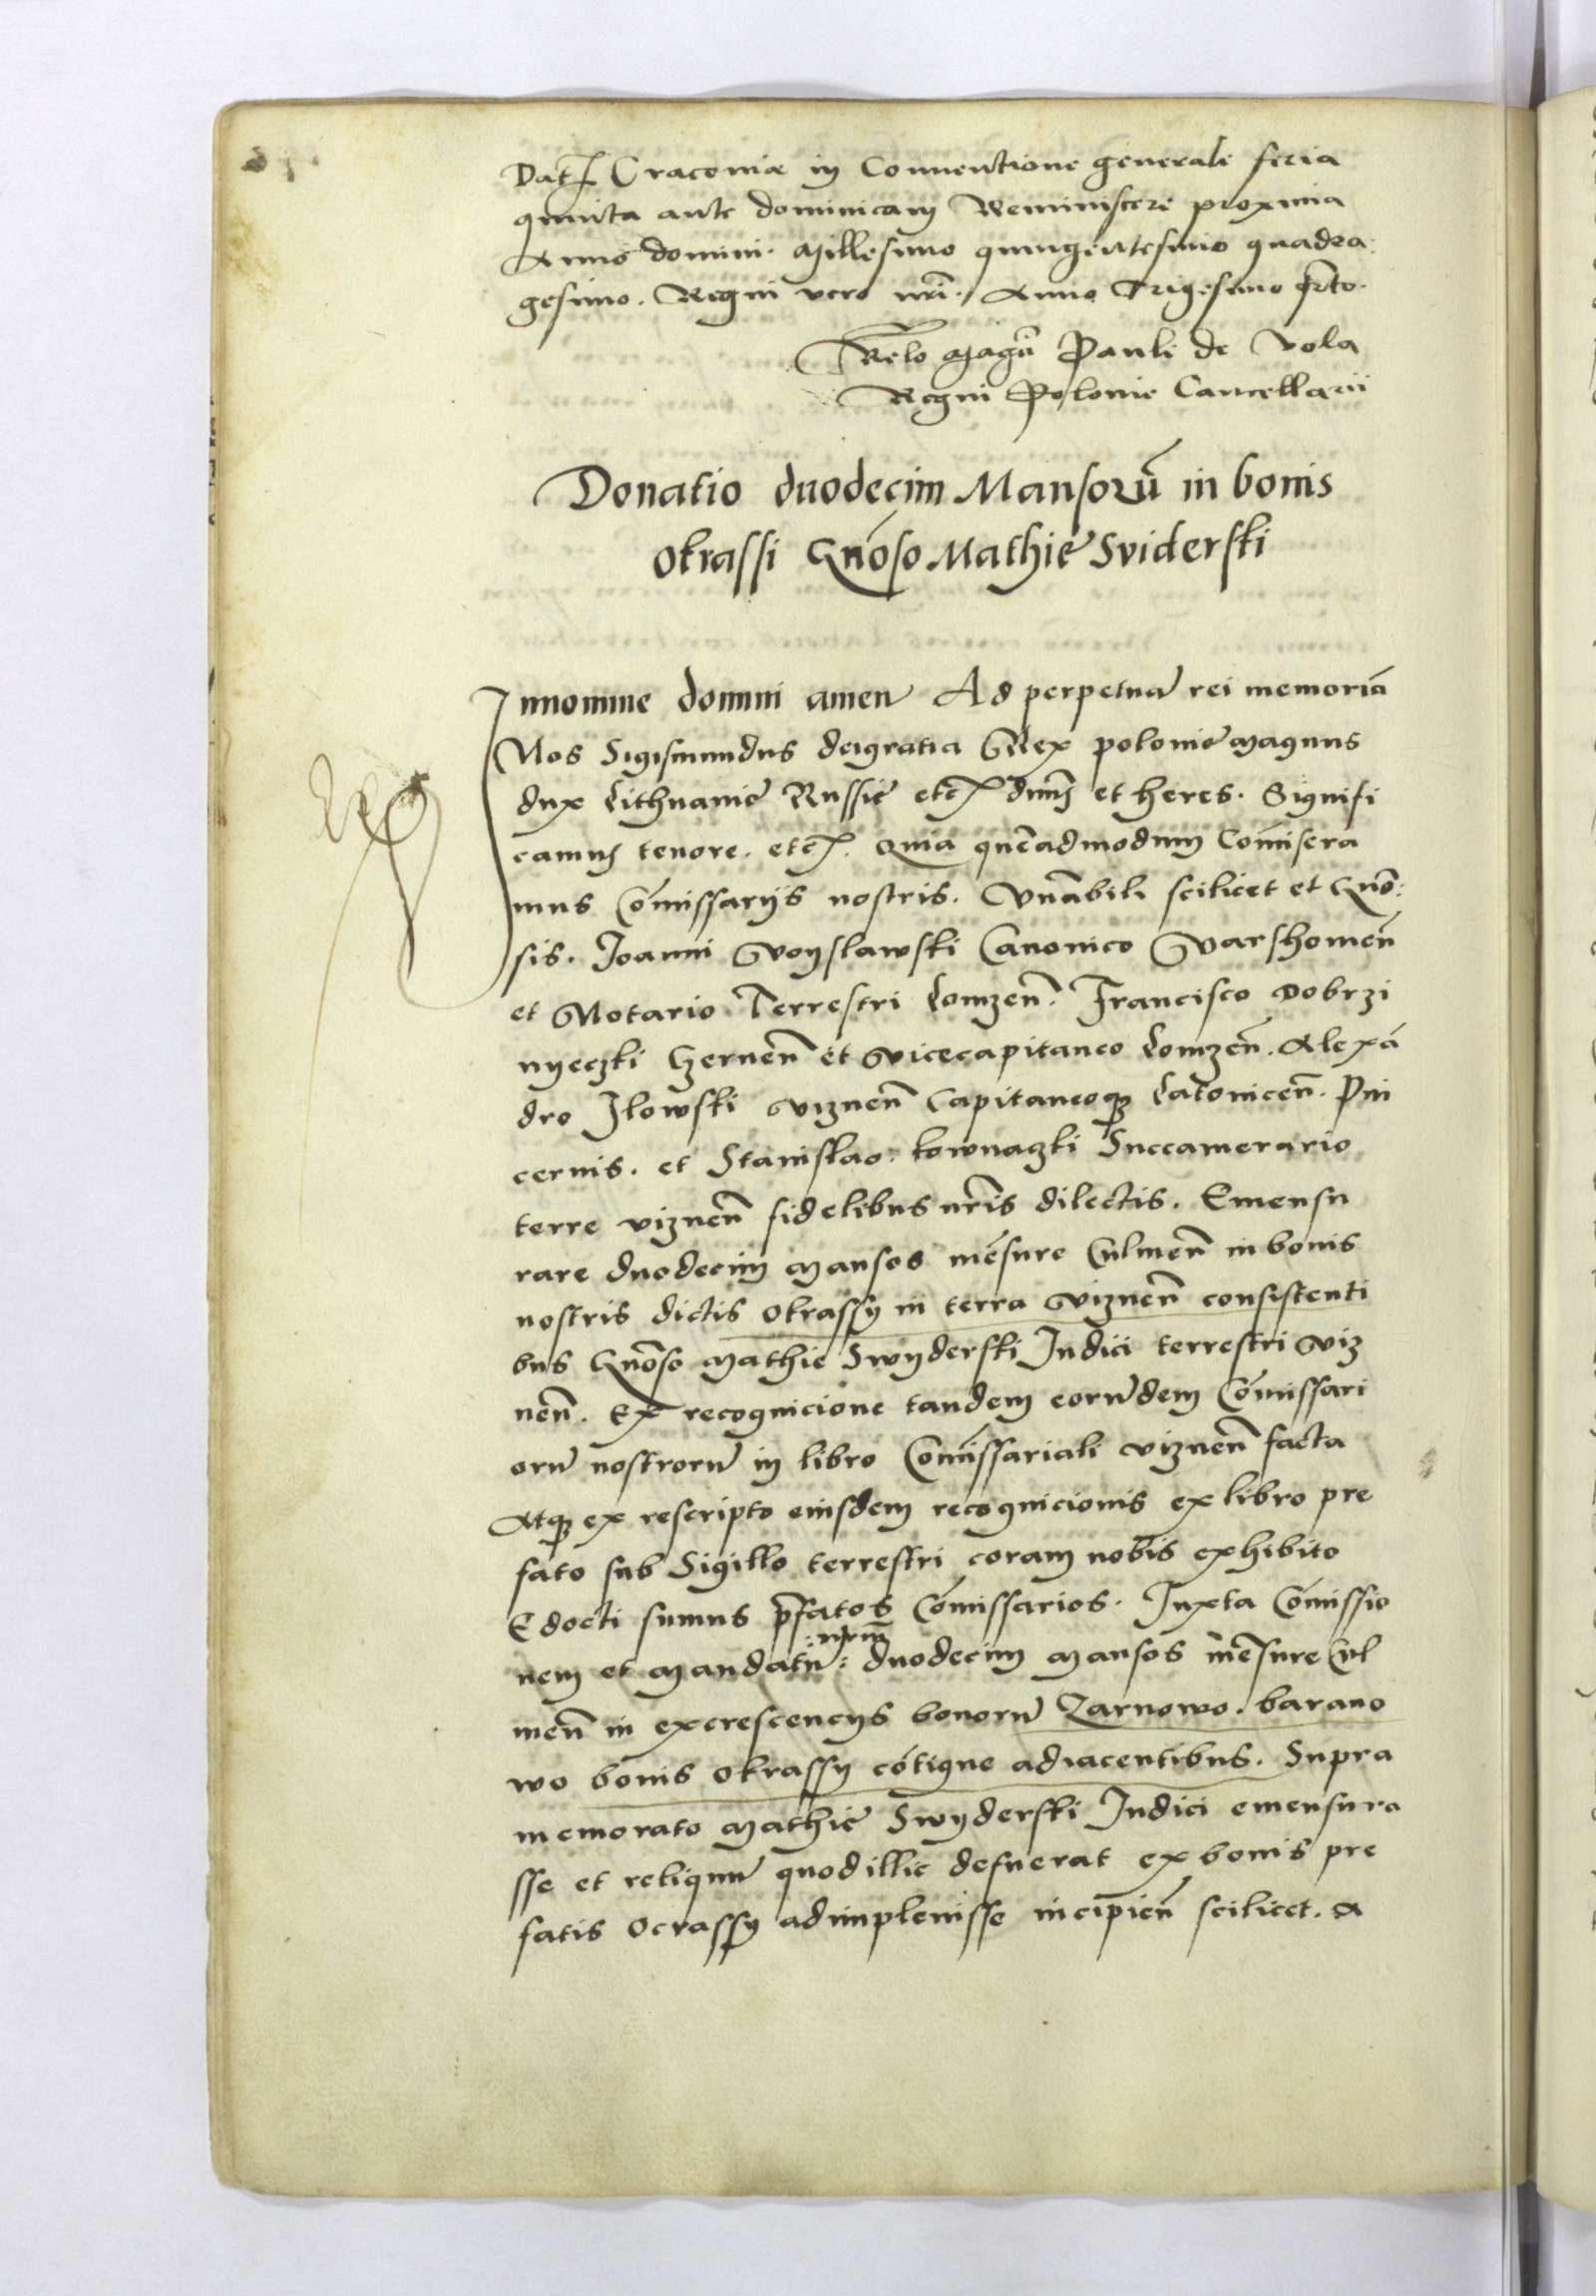 Dat Cracoviæ in Conventione generale feria
quinta ante dominicam Reminiscere proxima
Anno domini. Millesimo quingentesimo quadra:
gesimo. Regni vero nrī. Anno Trigesimo qrto.
Relo Magcī Pauli de Vola
Regni Polonie Cancellarii
Donatio duodecim Mansorū in bonis
Okrassi Gnōso Mathie Sviderski
In nomine domini amen Ad perpetuā rei memoriā
Nos Sigismundus dei gratia Rex polonie Magnus
dux Lithuanie Russie etc dnus et heres. Signifi
camus tenore. etc. Quia quēadmodum Comīsera
mus Comīssariis nostris. Venābili scilicet et Gnō:
sis. Joanni Voyslawski Canonico Varschovien̄
et Notario Terrestri Lomzen̄. Francisco Dobrzi
nyeczki Czernen̄ et vicecapitaneo Lomzen̄. Alexā
dro Jlowski viznen̄ Capitaneoqȝ Latovicen̄. Pin
cernis. et Stanislao. kownaczki Succamerario
terre viznen̄ fidelibus nrīs dilectis. Emensu
rare duodecim Mansos mēsure Culmen̄ in bonis
nostris dictis Okrassy in terra viznen̄ consistenti
bus Gnōso Mathie Swyderski Judici terrestri viz
nen̄. Ex recognicione tandem eorūdem Comīssari
orū nostrorū in libro Comīssariali viznen̄ facta
Atqȝ ex rescripto eiusdem recognicionis ex libro pre
fato sub Sigillo terrestri coram nobis exhibito
Edocti sumus p̄fatos Comīssarios. Juxta Comīssio
nem et Mandatū :nrm̄: duodecim Mansos mēsure Cul
men̄ in excrescenciis bonorū Zarnowo. barano
wo bonis Okrassy cōtigue adiacentibus. Supra
memorato Mathie Swyderski Judici emensura
sse et reliquū quod illic defuerat ex bonis pre
fatis Ocrassy adimplevisse incipien̄ scilicet. A